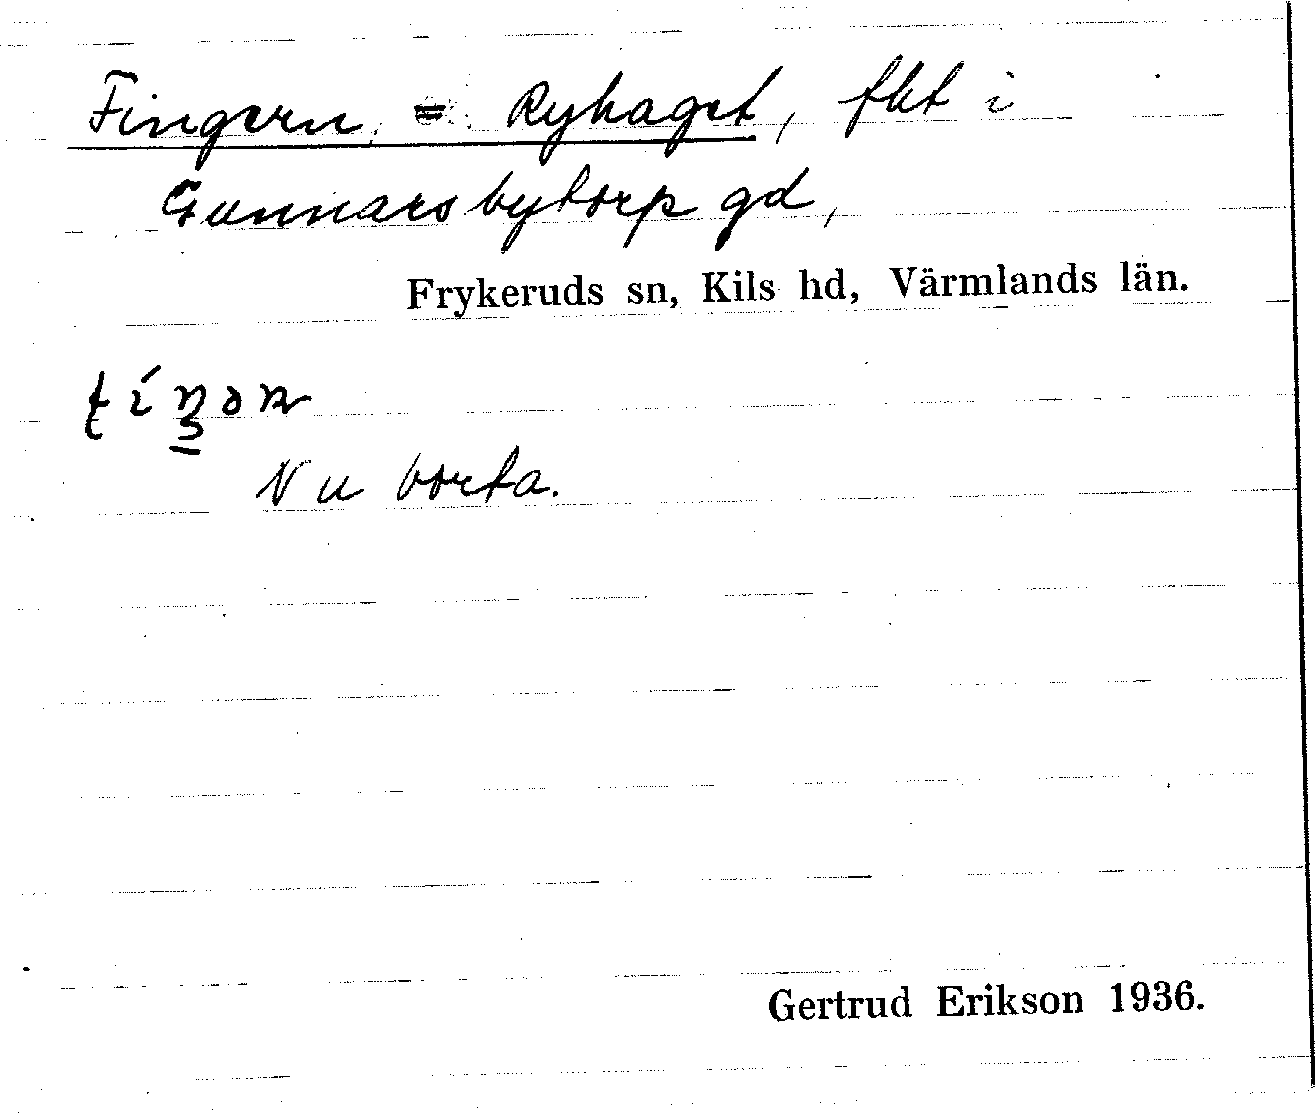 Fingern = Ryhaget, fkt i
Gunnarsbytorp gd,
Frykeruds sn, Kils hd, Värmlands län.
Nu borta.
Gertrud Erikson 1936.